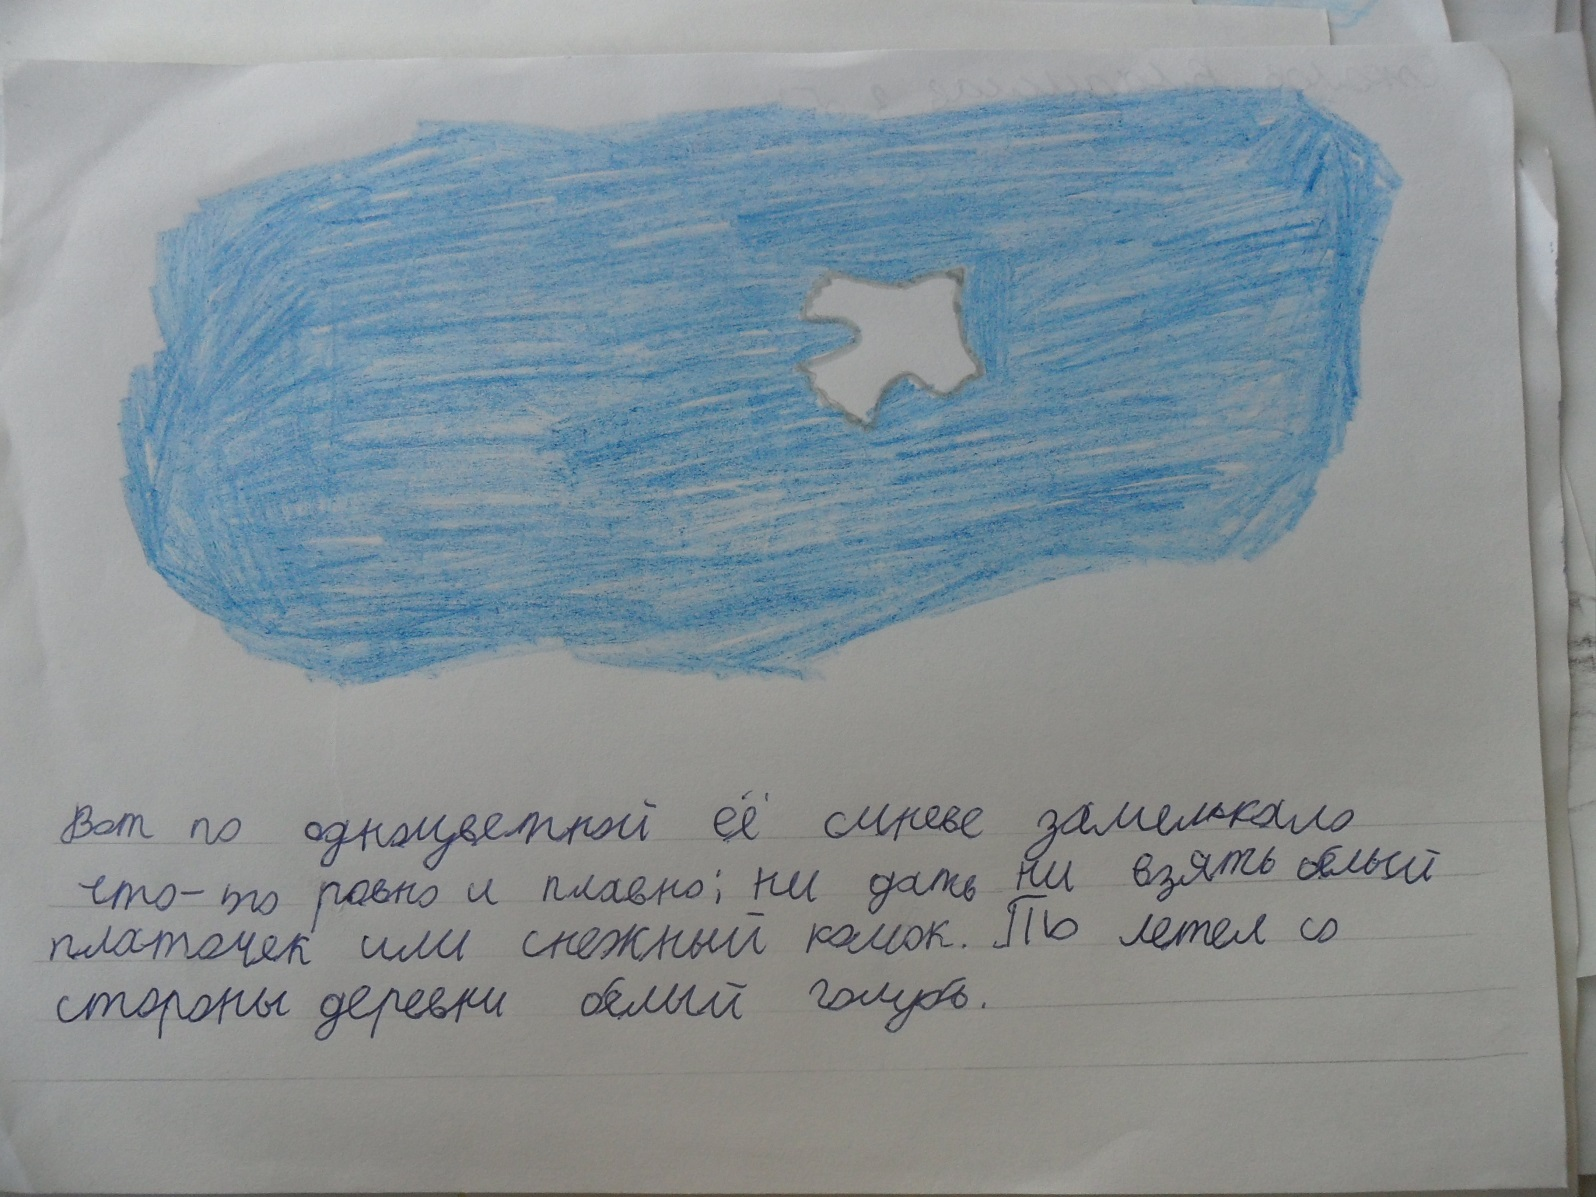 Вот по одноцветной её синеве замелькало
что-то ровно и плавно; ни дать ни взять белый
платочек или снежный комок. То летел со
стороны деревни белый голубь.